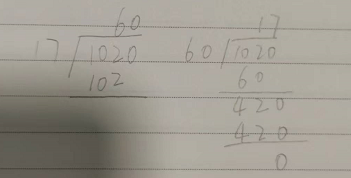 60
17 1020
102
17
60 1020
60
420
420
0